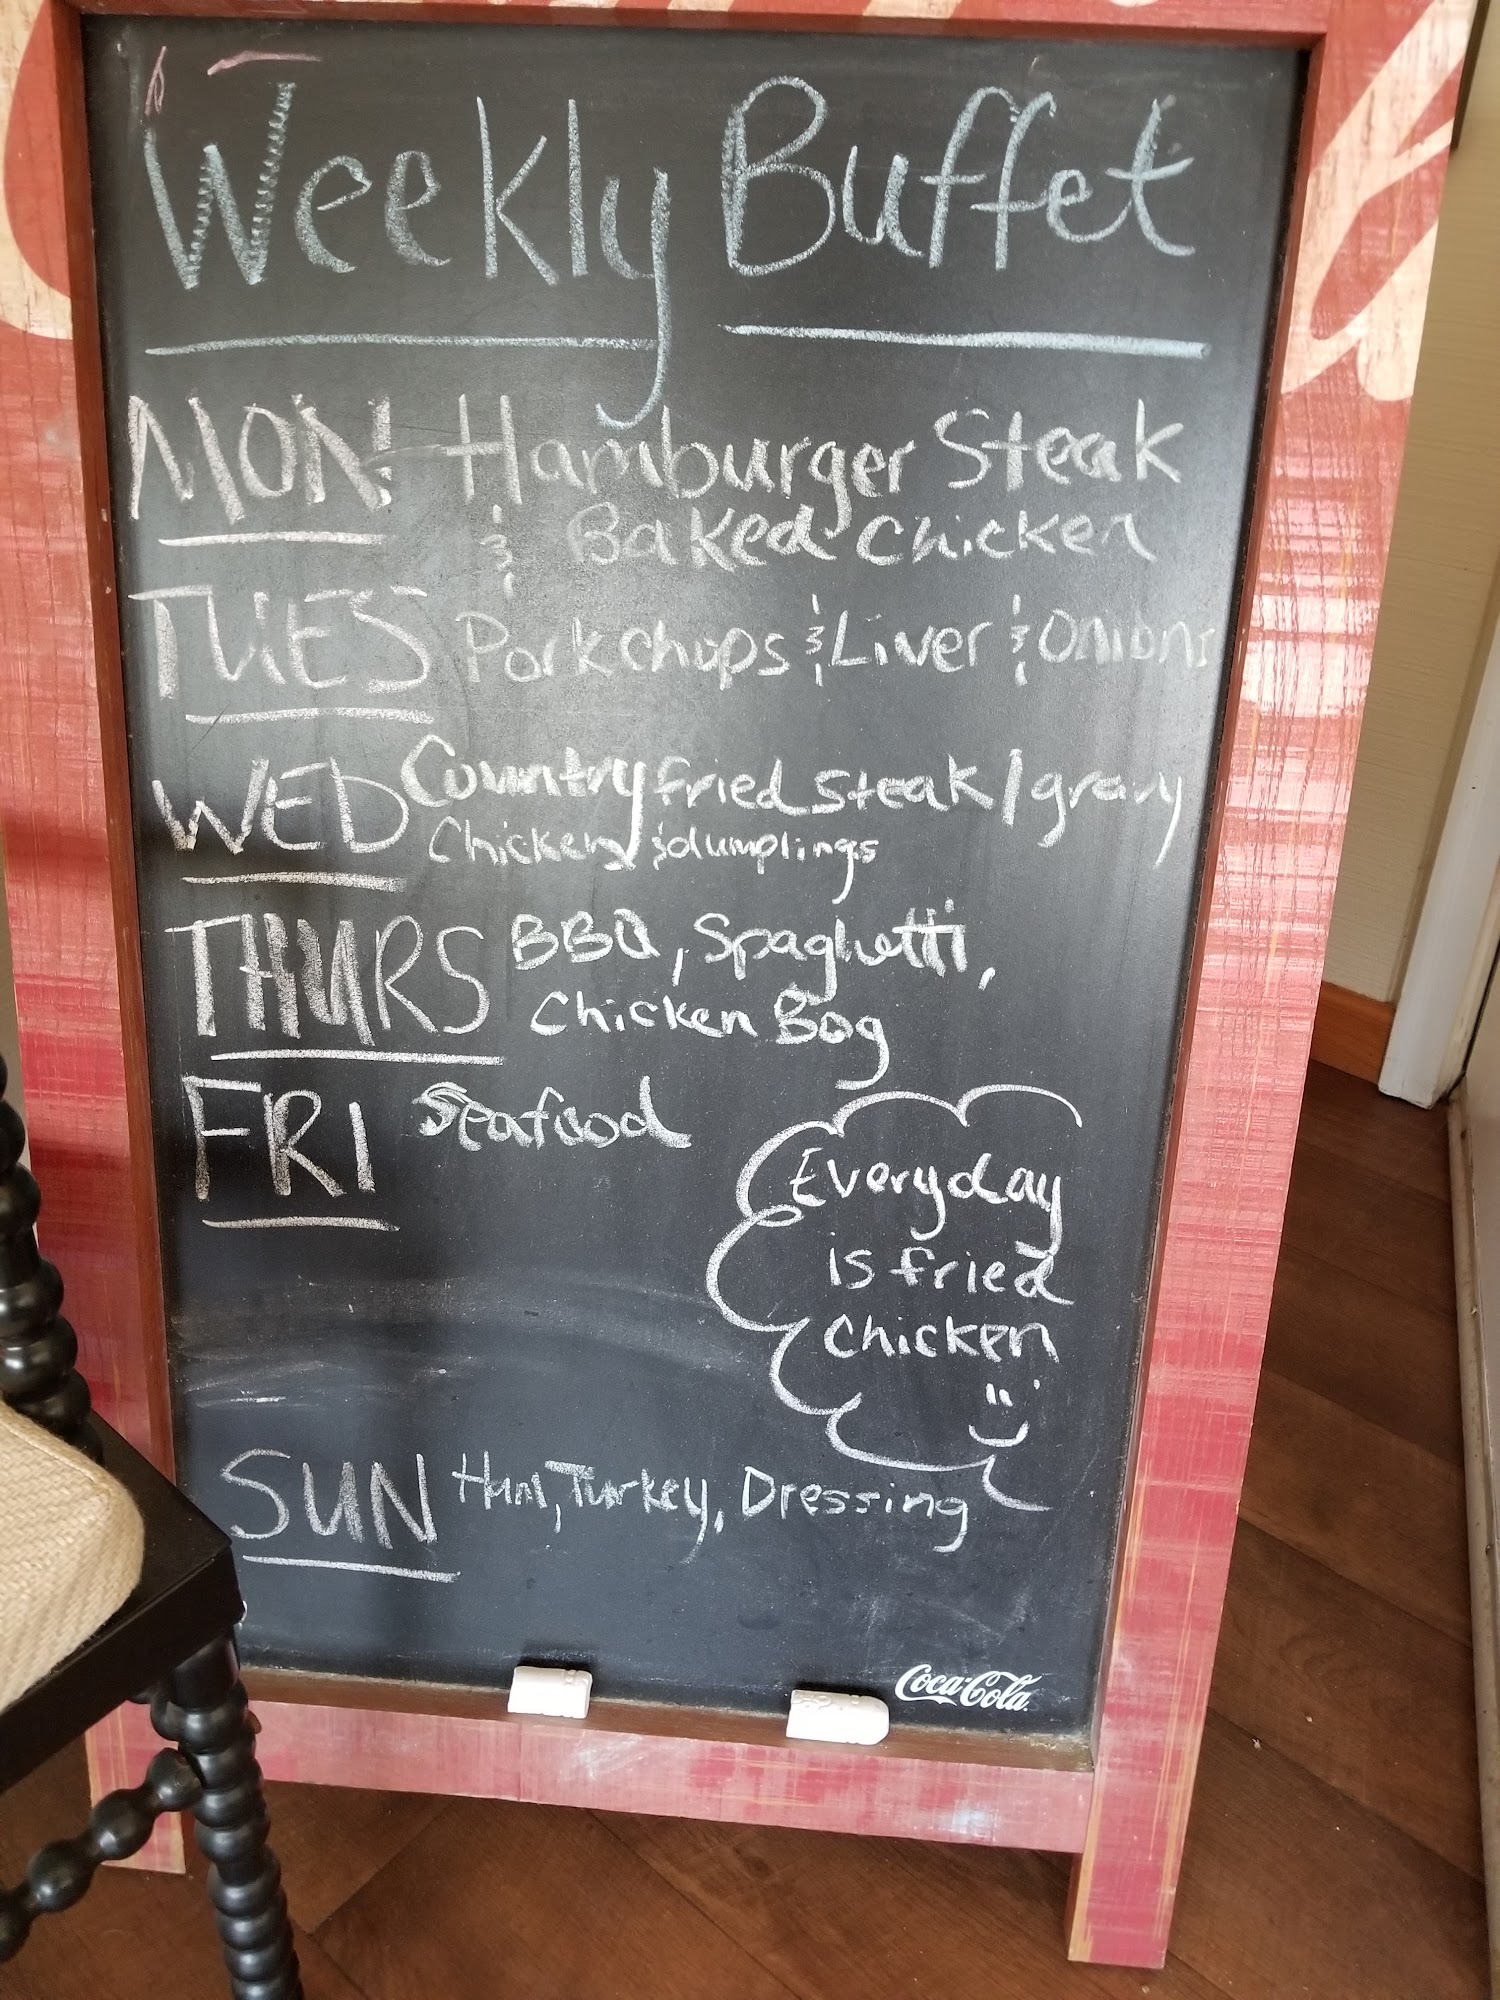 Weekly Buffet
MON Hamburger Steak
& Baked Chicken
TUES Pork chops & Liver & Onions
WED Country fried steak/gravy
Chicken & dumplings
THURS BBQ, Spaghetti,
Chicken Bog
FRI Seafood
Everyday
is fried
Chicken
SUN Ham, Turkey, Dressing
Coca-Cola